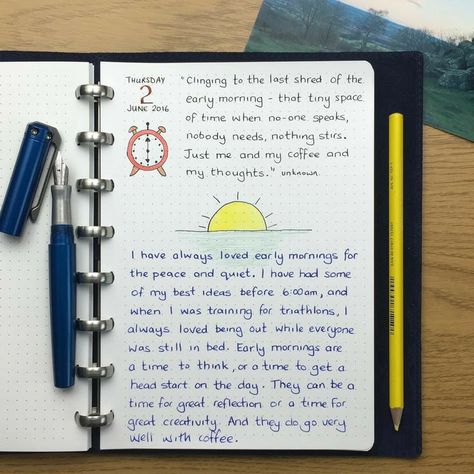 THURSDAY
2
JUNE 2016
"Clinging to the last shred of the
early morning - that tiny space
of time when no-one speaks,
nobody needs, nothing stirs.
Just me and my coffee and
my thoughts." unknown.
I have always loved early mornings for
the peace and quiet. I have had some
of my best ideas before 6:00am, and
when I was training for triathlons, I
always loved being out while everyone
was still in bed. Early mornings are
a time to think, or a time to get a
head start on the day. They can be a
time for great reflection or a time for
great creativity. And they do go very
well with coffee.